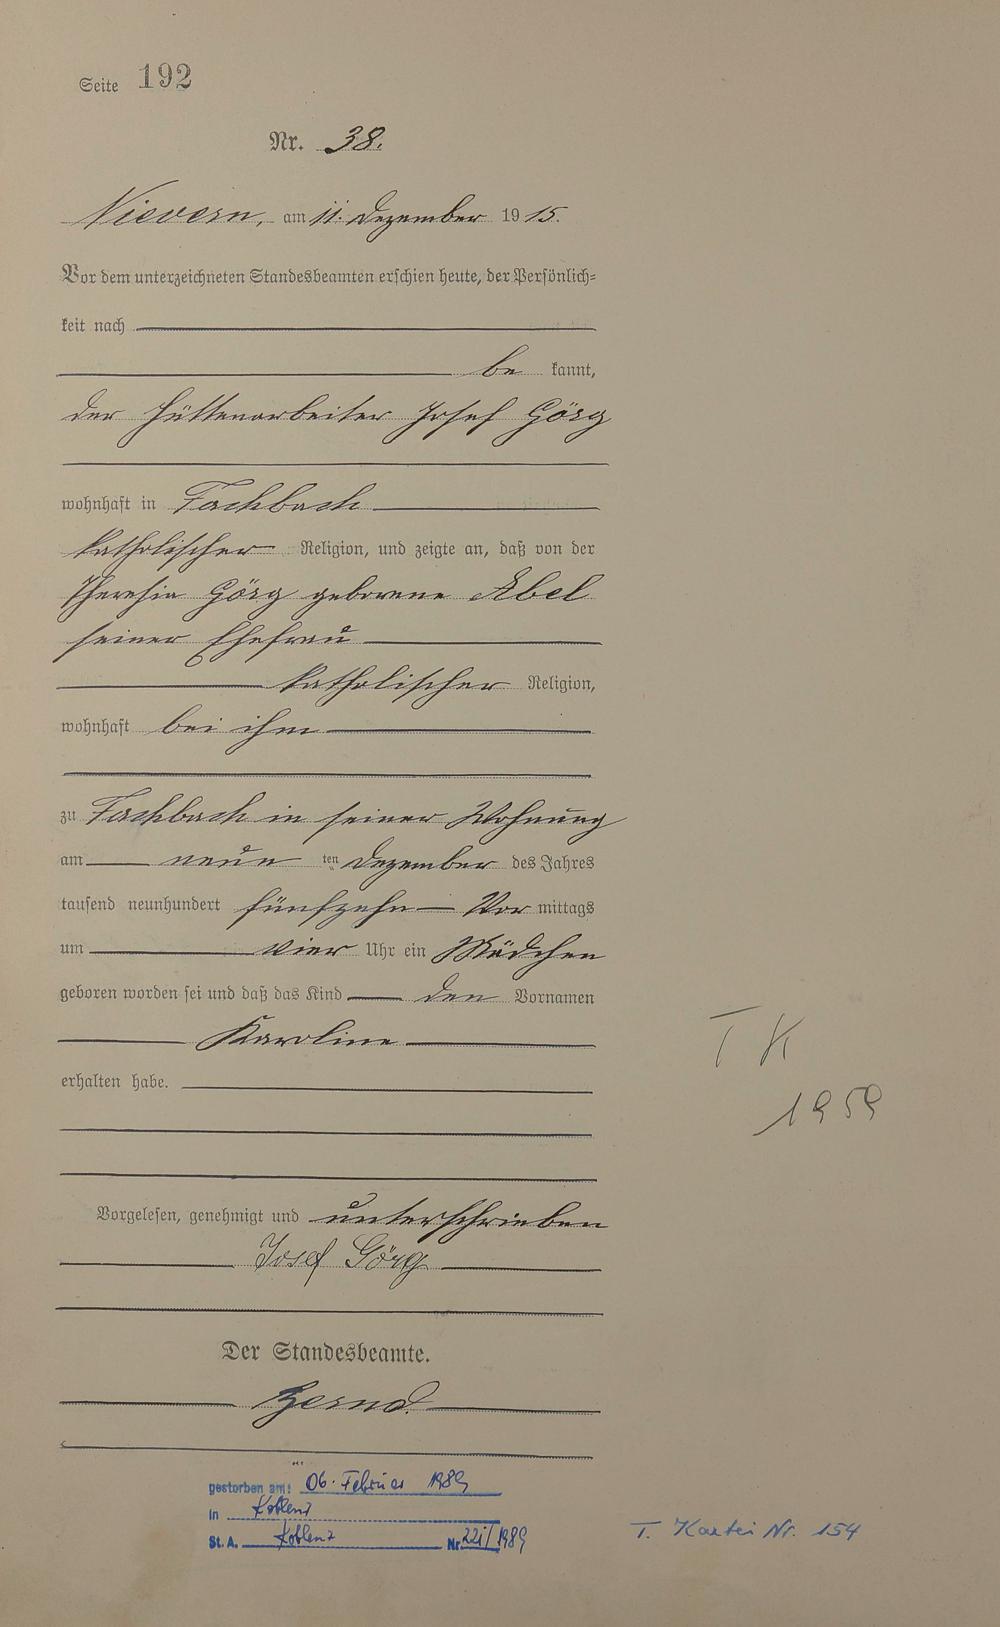 Seite 192
Nr. 38.
Nievern, am 11. Dezember 1915.
Vor dem unterzeichneten Standesbeamten erschien heute, der Persönlich=
keit nach
be kannt,
der Hüttenarbeiter Josef Görg
wohnhaft in Fachbach
katholischer Religion, und zeigte an, daß von der
Theresia Görg geborene Abel
seiner Ehefrau
katholischer Religion,
wohnhaft bei ihm
zu Fachbach in seiner Wohnung
am neun ten Dezember des Jahres
tausend neunhundert fünfzehn Vor mittags
um vier Uhr ein Mädchen
geboren worden sei und daß das Kind den Vornamen
Karoline
erhalten habe.
T K
1959
Vorgelesen, genehmigt und unterschrieben
Josef Görg
Der Standesbeamte.
gestorben am: 06. Februar 1989
in Koblenz
St. A. Koblenz Nr. 221/1989
T. Kartei Nr. 154